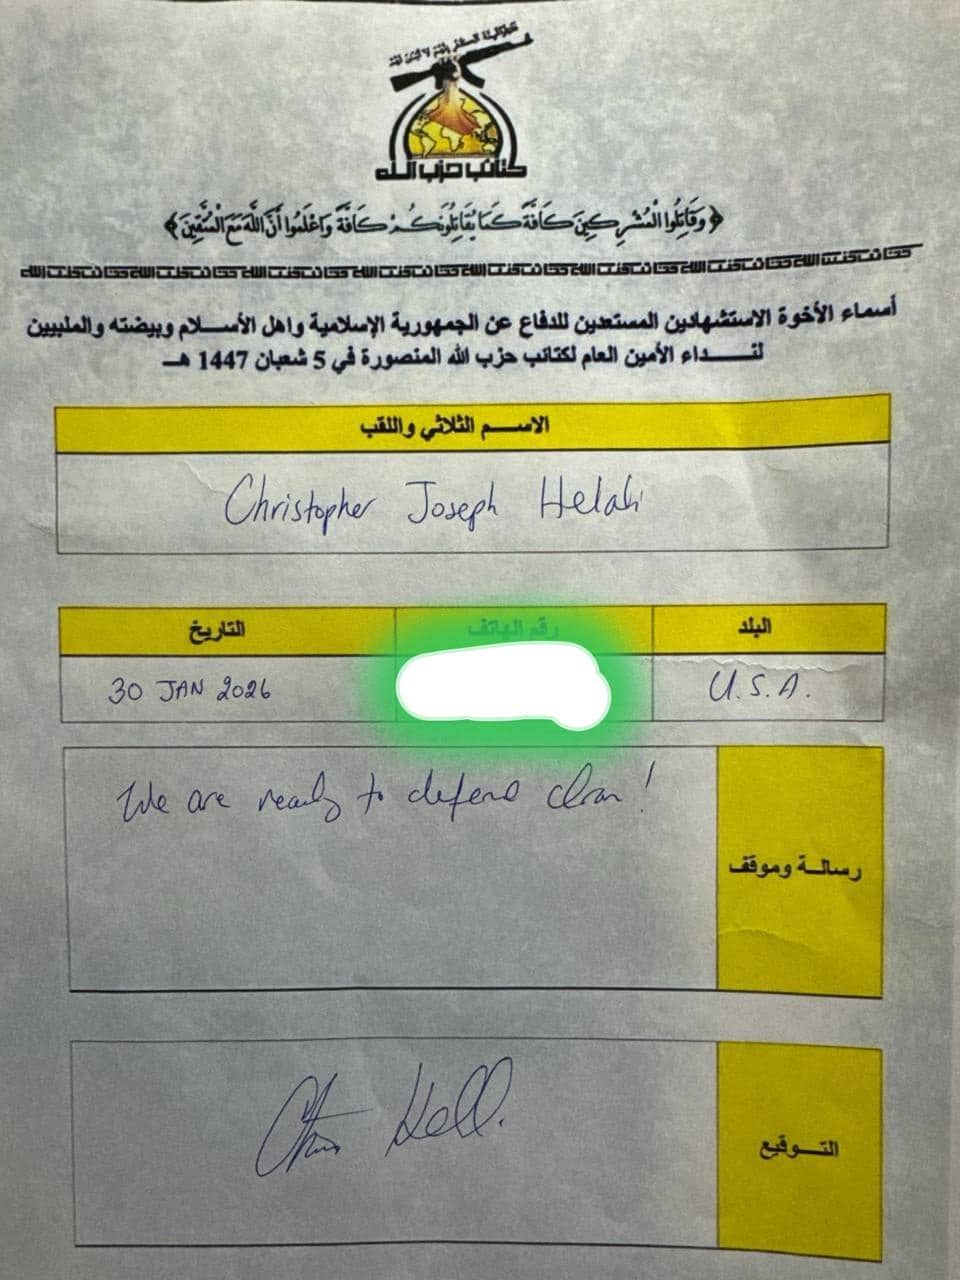 كتائب حزب الله
﴿ وَقَاتِلُوا الْمُشْرِكِينَ كَافَّةً كَمَا يُقَاتِلُونَكُمْ كَافَّةً وَاعْلَمُوا أَنَّ اللَّهَ مَعَ الْمُتَّقِينَ ﴾
أسماء الأخوة الاستشهادين المستعدين للدفاع عن الجمهورية الإسلامية واهل الأسلام وبيضته والملبيين
لنداء الأمين العام لكتائب حزب الله المنصورة في 5 شعبان 1447 هـ
الاسم الثلاثي واللقب
Christopher Joseph Helali
البلد رقم الهاتف التاريخ
U.S.A. 30 JAN 2026
We are ready to defend Iran!
رسالة وموقف
Chris Hell.
التوقيع